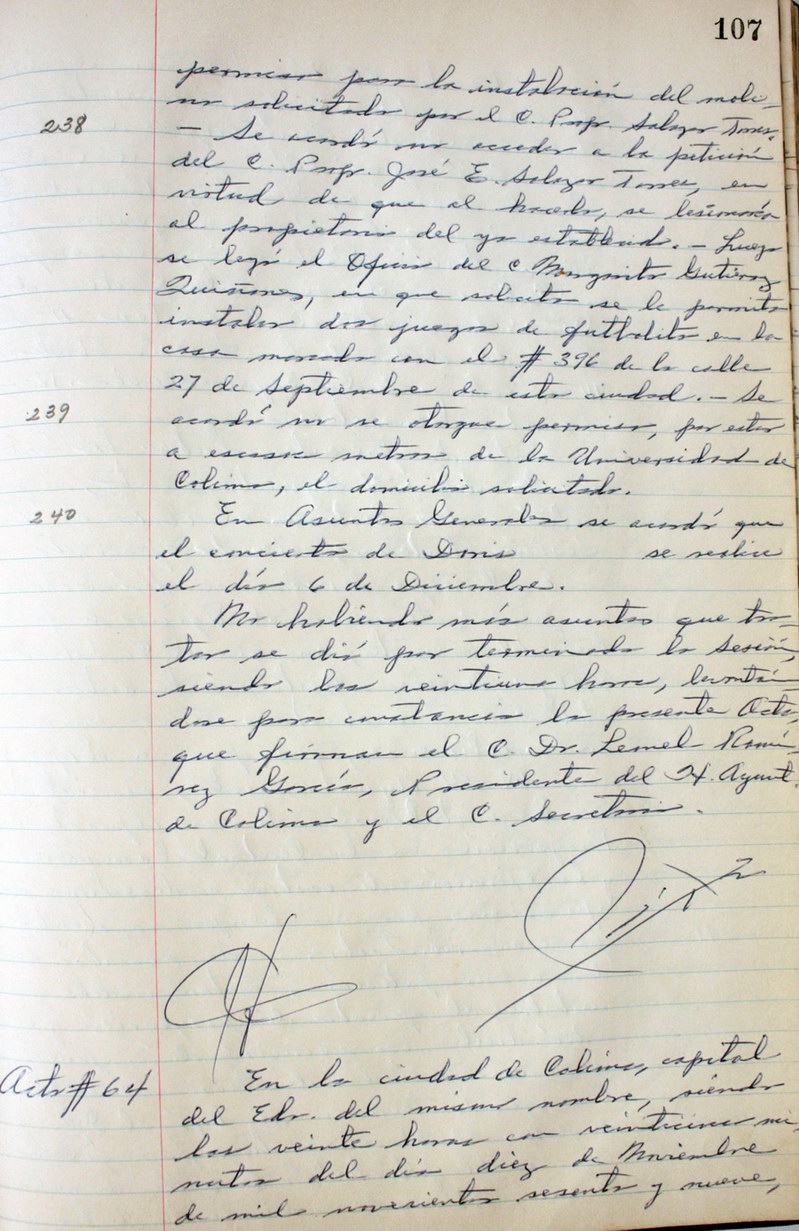 107
permiso para la instalación del moli-
no solicitado por el C. Profr. Salazar Torres.
238
— Se acordó no acceder a la petición
del C. Profr. José E. Salazar Torres, en
virtud de que al hacerlo, se lesionaría
al propietario del ya establecid. — Luego
se leyó el Oficio del C Margarito Gutiérrez
Quiñones, en que solicita se le permita
instalar dos juegos de futbolito en la
casa marcada con el # 396 de la calle
27 de Septiembre de esta ciudad. — Se
239
acordó no se otorgue permiso, por estar
a escasos metros de la Universidad de
Colima, el domicilio solicitado.
240
En Asuntos Generales se acordó que
el concierto de Doris se realice
el día 6 de Diciembre.
No habiendo más asuntos que tra-
tar se dió por terminada la Sesión,
siendo las veintiuna horas, levantán-
dose para constancia la presente Acta,
que firman el C. Dr. Leonel Ramí-
rez García, Presidente del H. Ayunt.
de Colima y el C. Secretario.
Acta # 64
En la ciudad de Colima, capital
del Edo. del mismo nombre, siendo
las veinte horas con veinticinco mi-
nutos del día diez de Noviembre
de mil novecientos sesenta y nueve,